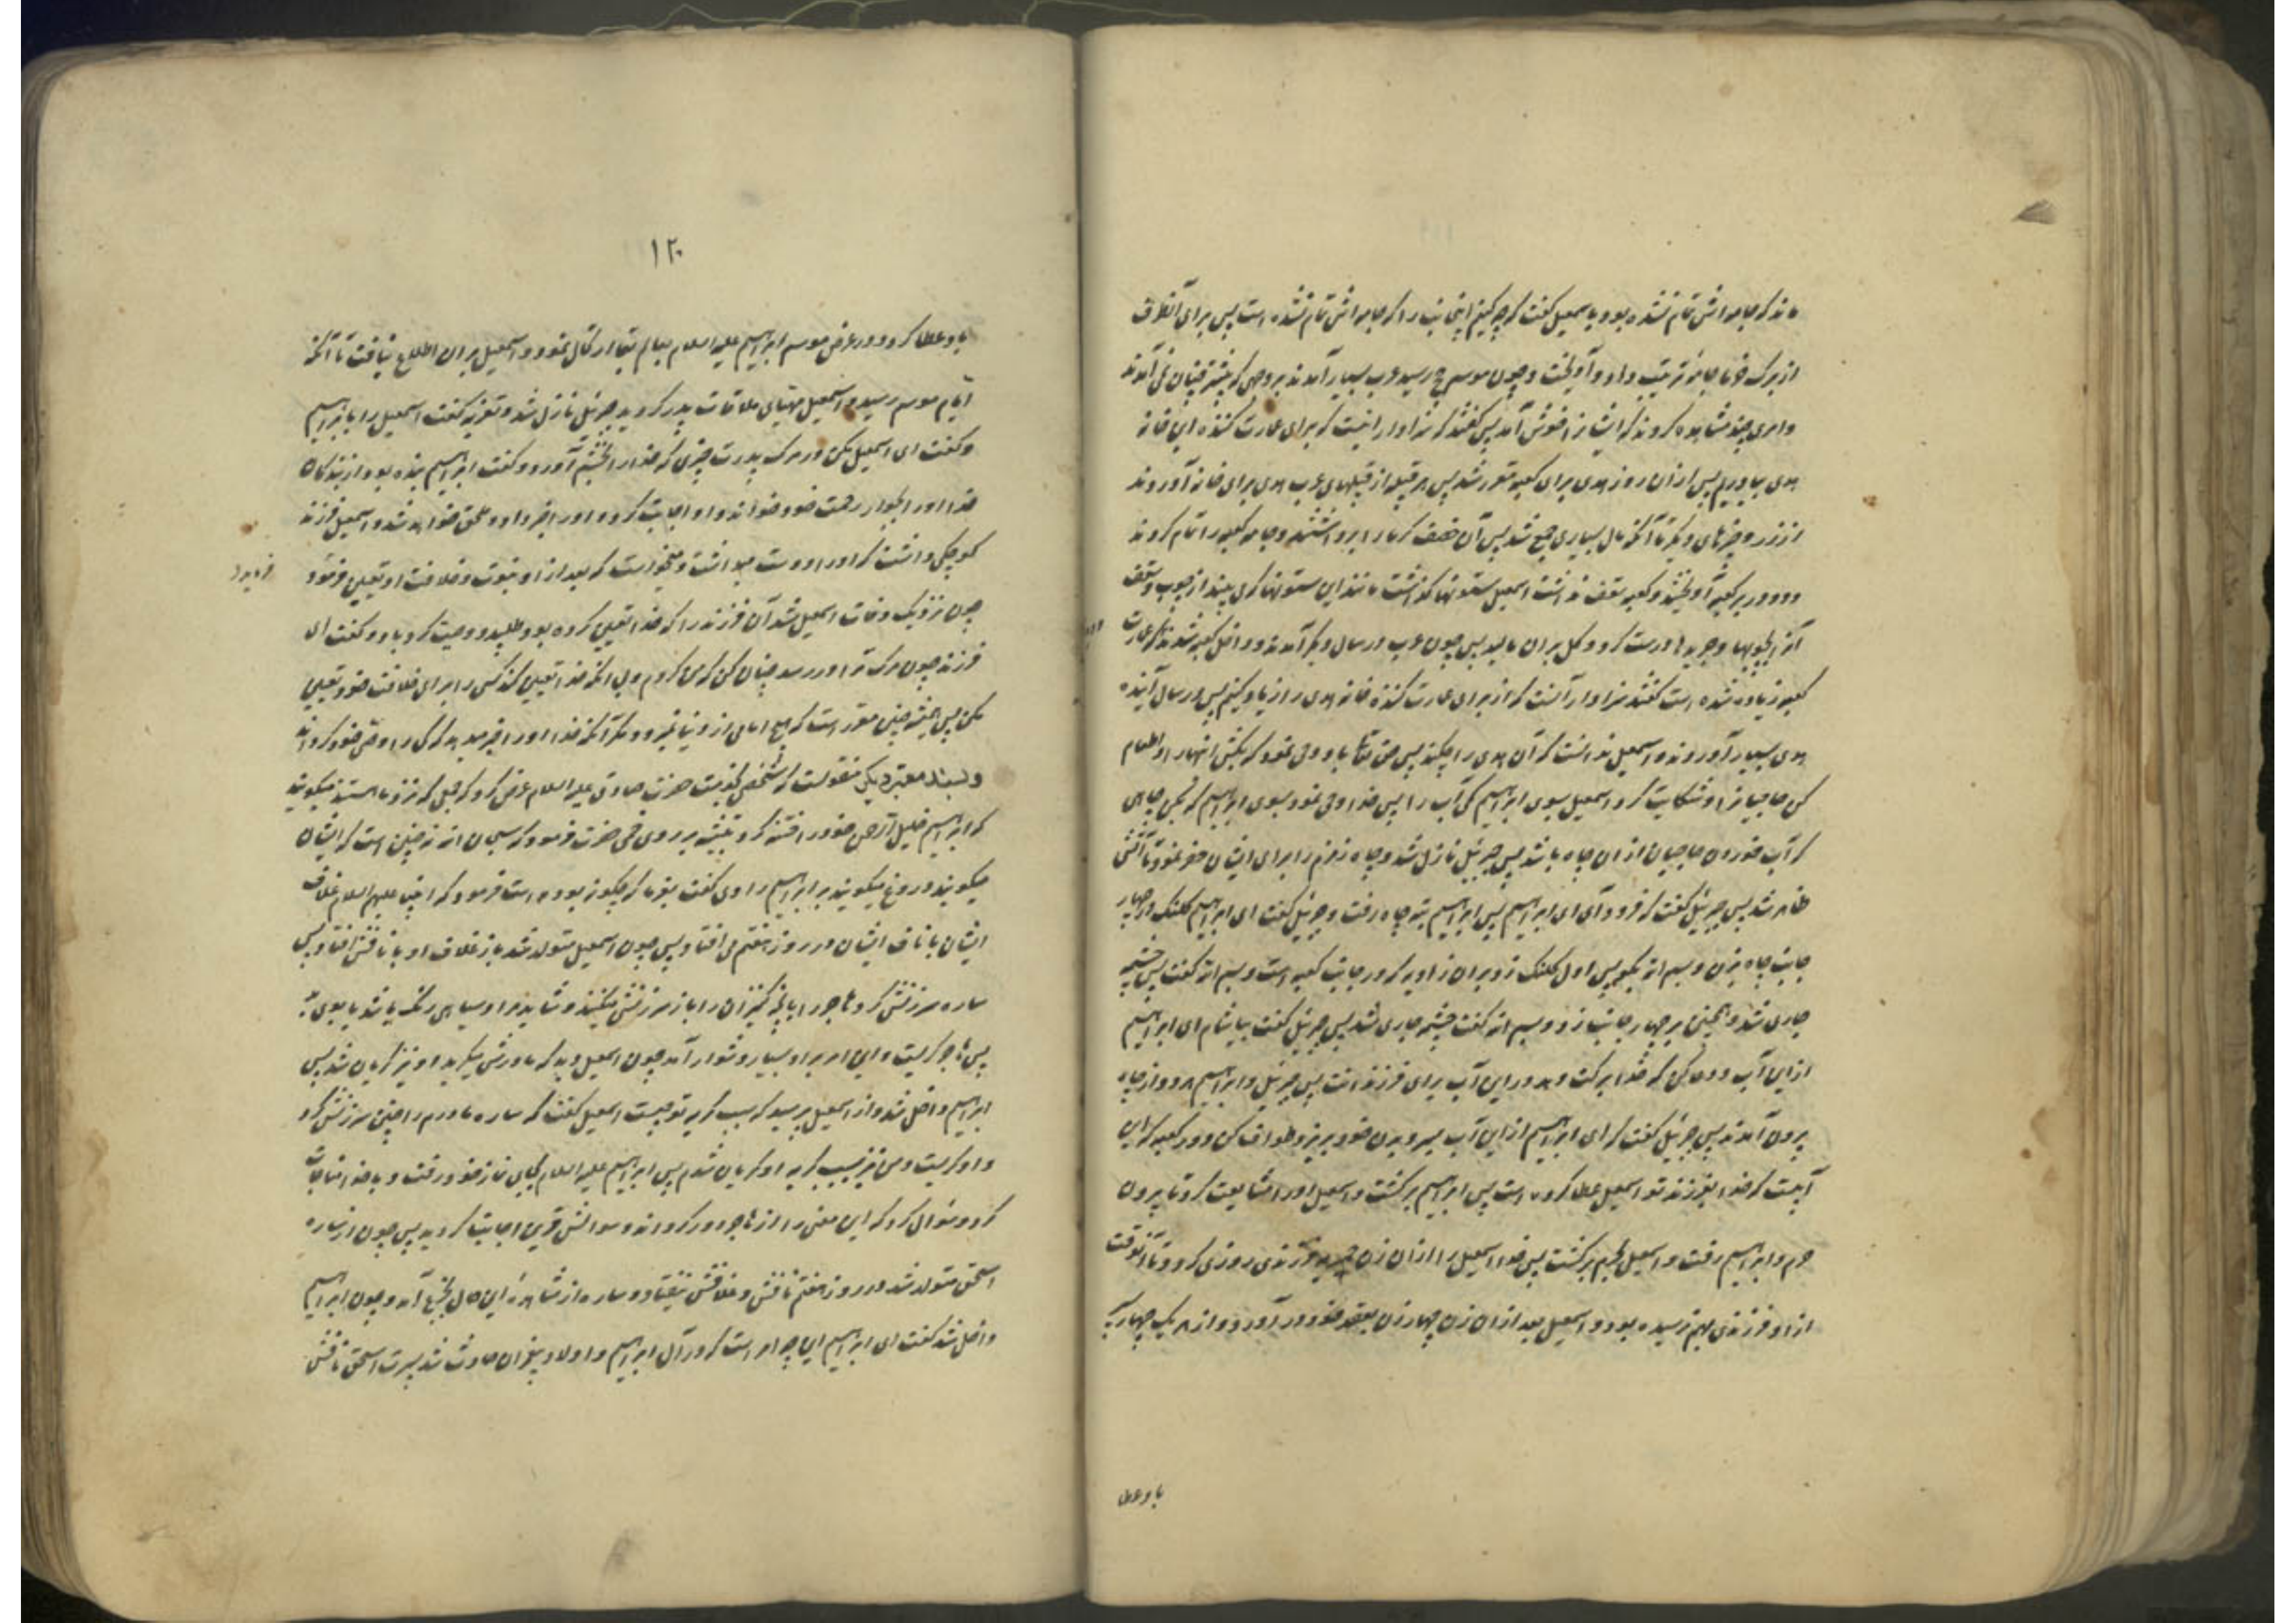 ماند که جامه اش تمام نشده بود و باسمعیل گفت که چه کنیم این جانب را که جامه اش تمام نشده است پس برای آنطرف
از برک خرما جامه ترتیب داد و آویخت و چون موسم حج رسید عرب بسیار آمدند بروجهی که پیشتر چنان نمی آمدند
و امری چند مشاهده کردند که ایشان را خوش آمد پس گفتند که سزاوار انیست که برای عمارت کننده این خانه
هدی بیاوریم پس ازان روز هدی برای کعبه مقرر شد پس هر قبیله از قبیلهای عرب هدی برای خانه آوردند
از زر و چیزهای دیگر تا آنکه مال بسیاری جمع شد پس آن خصف کرمار ابرداشتند و جامه کعبه را تمام کردند
و دو در بر کعبه آویختند و کعبه سقف نداشت اسمعیل ستونها گذاشت مانند این ستونها که می بینید از چوب و سقف
آنرا بچوبها و جریدها درست کرد و کل بران مالید پس چون عرب در سال دیگر آمدند و داخل کعبه شدند که عمارت
کعبه زیاده شده است گفتند سزاوار آنست که از برای عمارت کننده خانه هدی را زیاد کنیم پس در سال آینده
هدی بسیار آوردند و اسمعیل ندانست که آن هدی را چکند پس حق تعالی باو وحی نمود که بکش انها را و اطعام
کن حاجیان را و شکایت کرد اسمعیل بسوی ابراهیم کمی آب را پس خدا وحی نمود بسوی ابراهیم که بکن چاهی
که آب خوردن حاجیان ازان چاه باشد پس جبرئیل نازل شد و چاه زمزم را برای ایشان حفر نمود تا آبش
ظاهر شد پس جبرئیل گفت که فرود آی ای ابراهیم پس ابراهیم بته چاه رفت و جبرئیل گفت ای ابراهیم کلنک در چهار
جانب چاه بزن و بسم الله بگو پس اول کلنک زد بران زاویه که در جانب کعبه است و بسم الله گفت پس چشمه
جاری شد و همچنین بر چهار جانب زد و بسم الله گفت چشمه جاری شد پس جبرئیل گفت بیاشام ای ابراهیم
ازین آب و دعا کن که خدا برکت دهد درین آب برای فرزندانت پس جبرئیل و ابراهیم هر دو از چاه
بیرون آمدند پس جبرئیل گفت که ای ابراهیم ازین آب بسر و بدن خود بریز و طواف کن دور کعبه که این
آبیست که خدا بفرزند تو اسمعیل عطا کرده است پس ابراهیم برگشت و اسمعیل او را مشایعت کرد تا بیرون
حرم و ابراهیم رفت و اسمعیل بحرم برگشت پس خدا اسمعیل را ازان زن حمیریه فرزندی روزی کرد و تا آنوقت
از او فرزندی بهم نرسیده بود و اسمعیل بعد ازان زن چهار زن بعقد خود در آورد و از هر یک چهار پسر
باو عطا
۱۲۰
باو عطا کرد و در عرض موسم ابراهیم علیه السلام بعالم بقا ارتحال نمود و اسمعیل بران اطلاع نیافت تا آنکه
ایام موسم رسید و اسمعیل مهیای ملاقات پدر گردید جبرئیل نازل شد و تعزیه گفت اسمعیل را بابراهیم
و گفت ای اسمعیل مکن در مرک پدرت چیزی که خدا را بخشم آورد و گفت ابراهیم بنده بود از بندگان
خدا او را بجوار رحمت خود خواند و او اجابت کرد و او را خبر داد و ملحق خواهد شد و اسمعیل فرزند
کوچکی داشت که او را دوست میداشت و میخواست که بعد از او نبوت و خلافت او تعیین فرمود
چون نزدیک وفات اسمعیل شد آن فرزند را که خدا تعیین کرده بود طلبید و وصیت کرد باو و گفت ای
فرزند چون مرک ترا در رسد چنان کن که من کردم و بی آنکه خدا تعیین کند کسی را برای خلافت خود تعیین
مکن پس همیشه چنین مقرر است که هیچ امامی از دنیا نمیرود مگر آنکه خدا او را خبر میدهد که کی را وصی خود گرداند
و بسند معتبر دیگر منقولست که شخصی بخدمت حضرت صادق علیه السلام عرض کرد که جمعی که نزد ما هستند میگویند
که ابراهیم خلیل الرحمن خود را ختنه کرد بتیشه بر روی خمی حضرت فرمود که سبحان الله نه چنین است که ایشان
میگویند دروغ میگویند بر ابراهیم راوی گفت بفرما که چگونه بوده است فرمود که انبیا علیهم السلام غلاف
ایشان با ناف ایشان در روز هفتم می افتاد پس چون اسمعیل متولد شد باز غلاف او با نافش افتاد پس
ساره سرزنش کرد هاجر را بانچه کنیزان را بان سرزنش میکنند و شاید مراد سیاهی رنک باشد یا بوی بد
پس هاجر گریست و این امر بر او بسیار دشوار آمد چون اسمعیل دید که مادرش میگرید او نیز گریان شد پس
ابراهیم داخل شد و از اسمعیل پرسید که سبب گریه تو چیست اسمعیل گفت که ساره مادرم را چنین سرزنش کرد
و او گریست و من نیز بسبب گریه او گریان شدم پس ابراهیم علیه السلام بجای نماز خود رفت و با خدا مناجات
کرد و سؤال کرد که این معنی را از هاجر دور گرداند و سوالش قرین اجابت گردید پس چون از ساره
اسحق متولد شد در روز هفتم نافش و غلافش نیفتاد و ساره از مشاهدۀ این حال بجزع آمد و چون ابراهیم
داخل شد گفت ای ابراهیم این چه امر است که در آل ابراهیم و اولاد پیغمبران حادث شد پسرت اسحق نافش